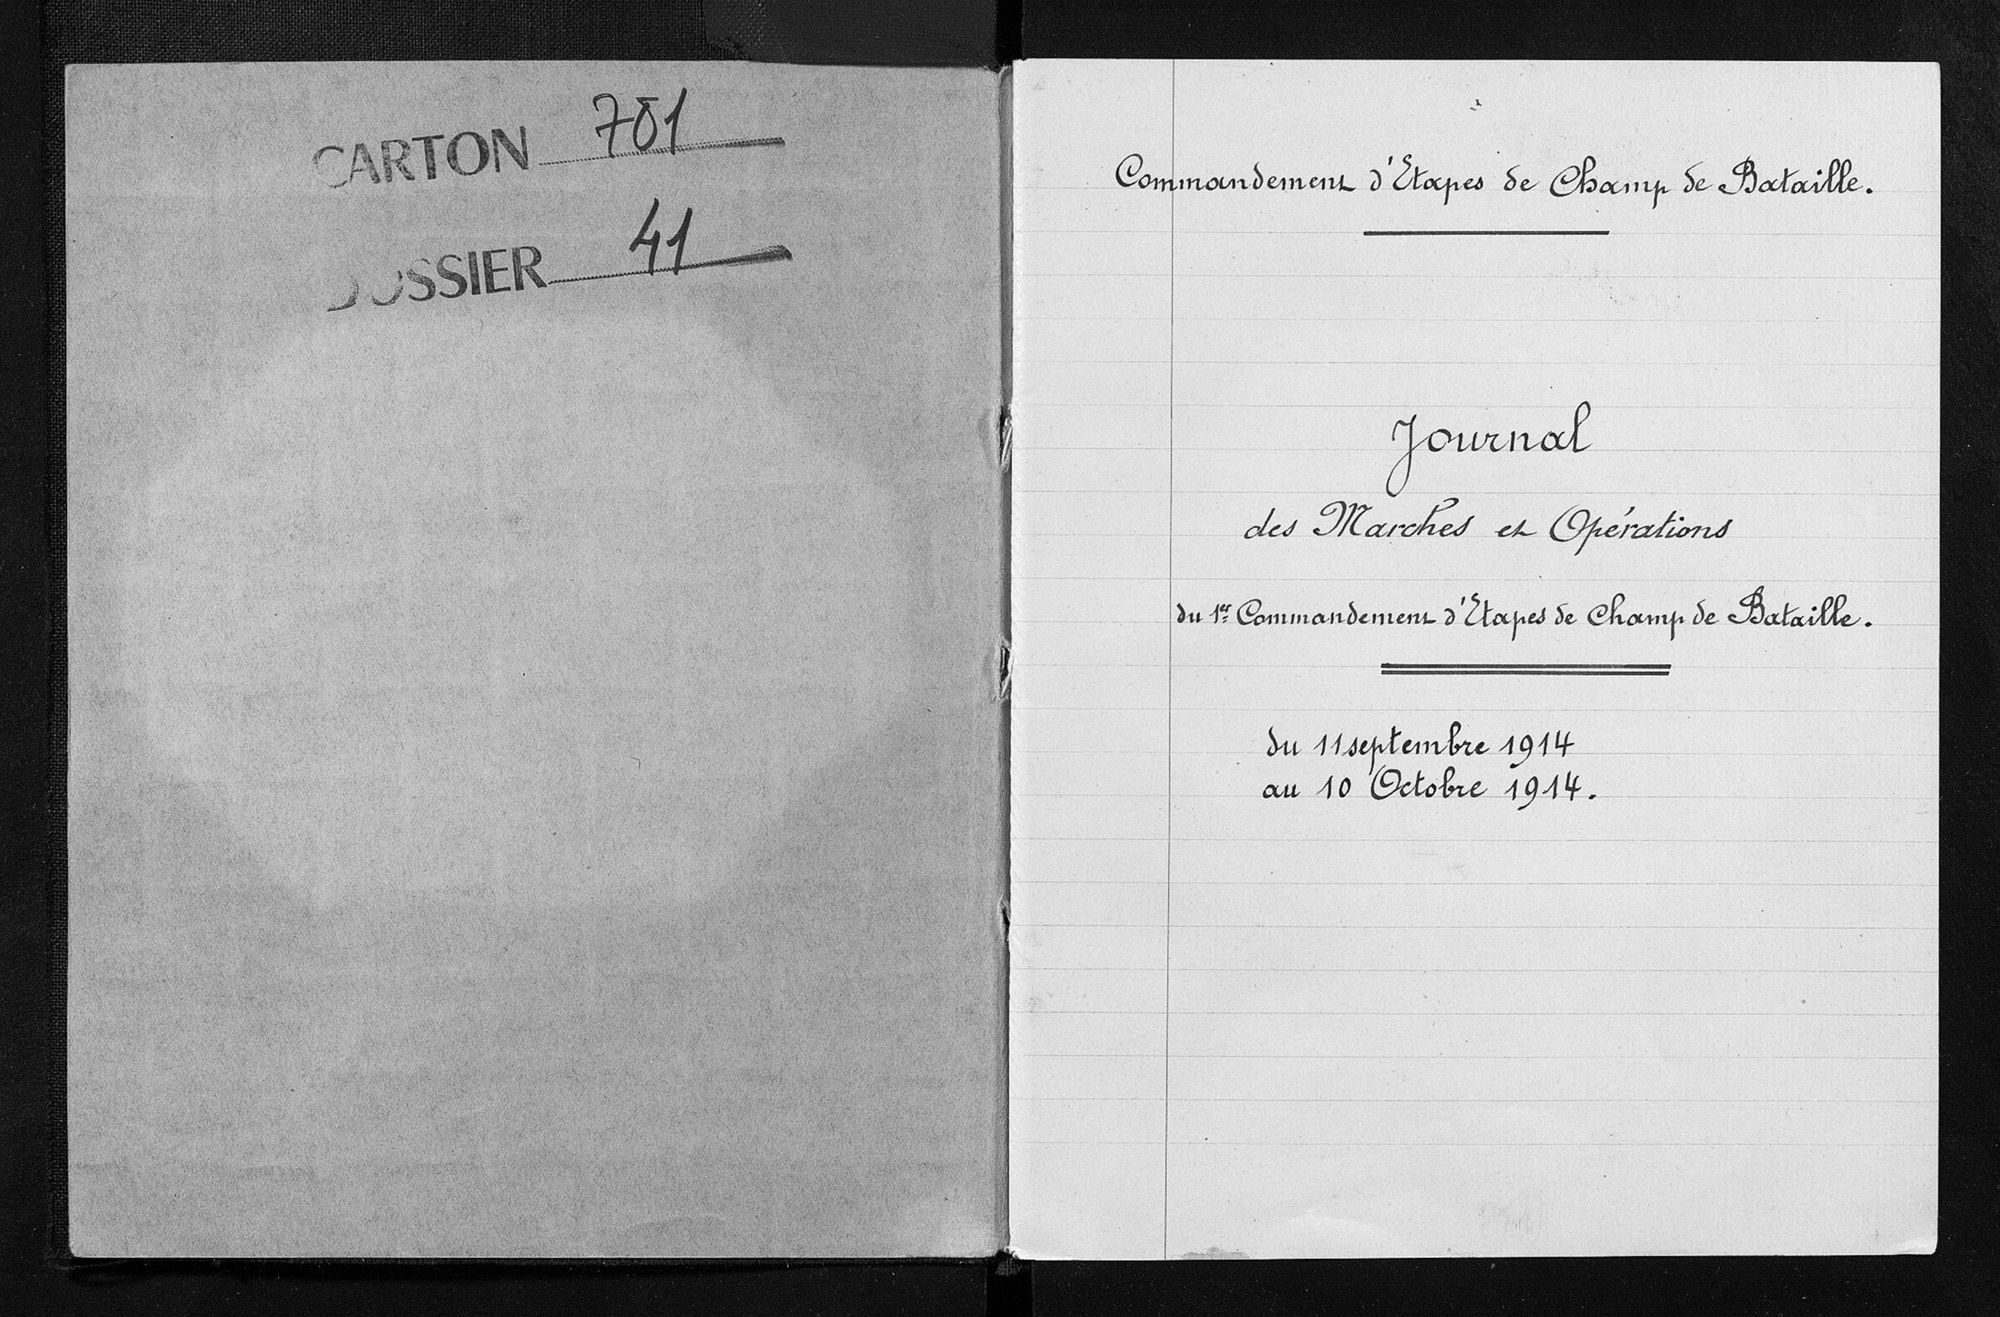 CARTON 701
DOSSIER 41
Commandement d'Etapes de Champ de Bataille.
Journal
des Marches et Opérations
du 1er Commandement d'Etapes de Champ de Bataille.
du 11 septembre 1914
au 10 Octobre 1914.